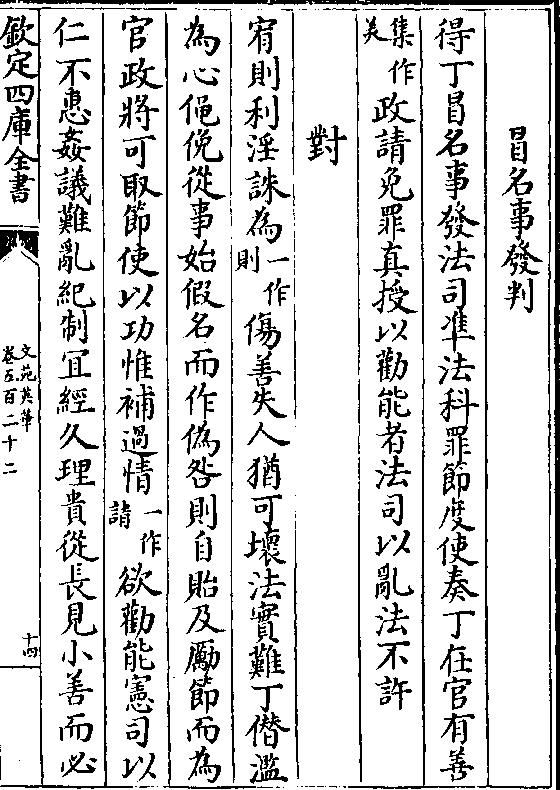 冒名事發判
得丁冒名事發法司准法科罪節度使奏丁在官有善
集作美政請免罪真授以勸能者法司以亂法不許
對
宥則利淫誅為一作則傷善失人猶可壞法實難丁僭濫
為心僶俛從事始假名而作偽咎則自貽及勵節而為
官政將可取節使以功惟補過情一作請欲勸能憲司以
仁不惠姦議難亂紀制宜經久理貴從長見小善而必
欽定四庫全書
文苑英華
卷五百二十二
十四